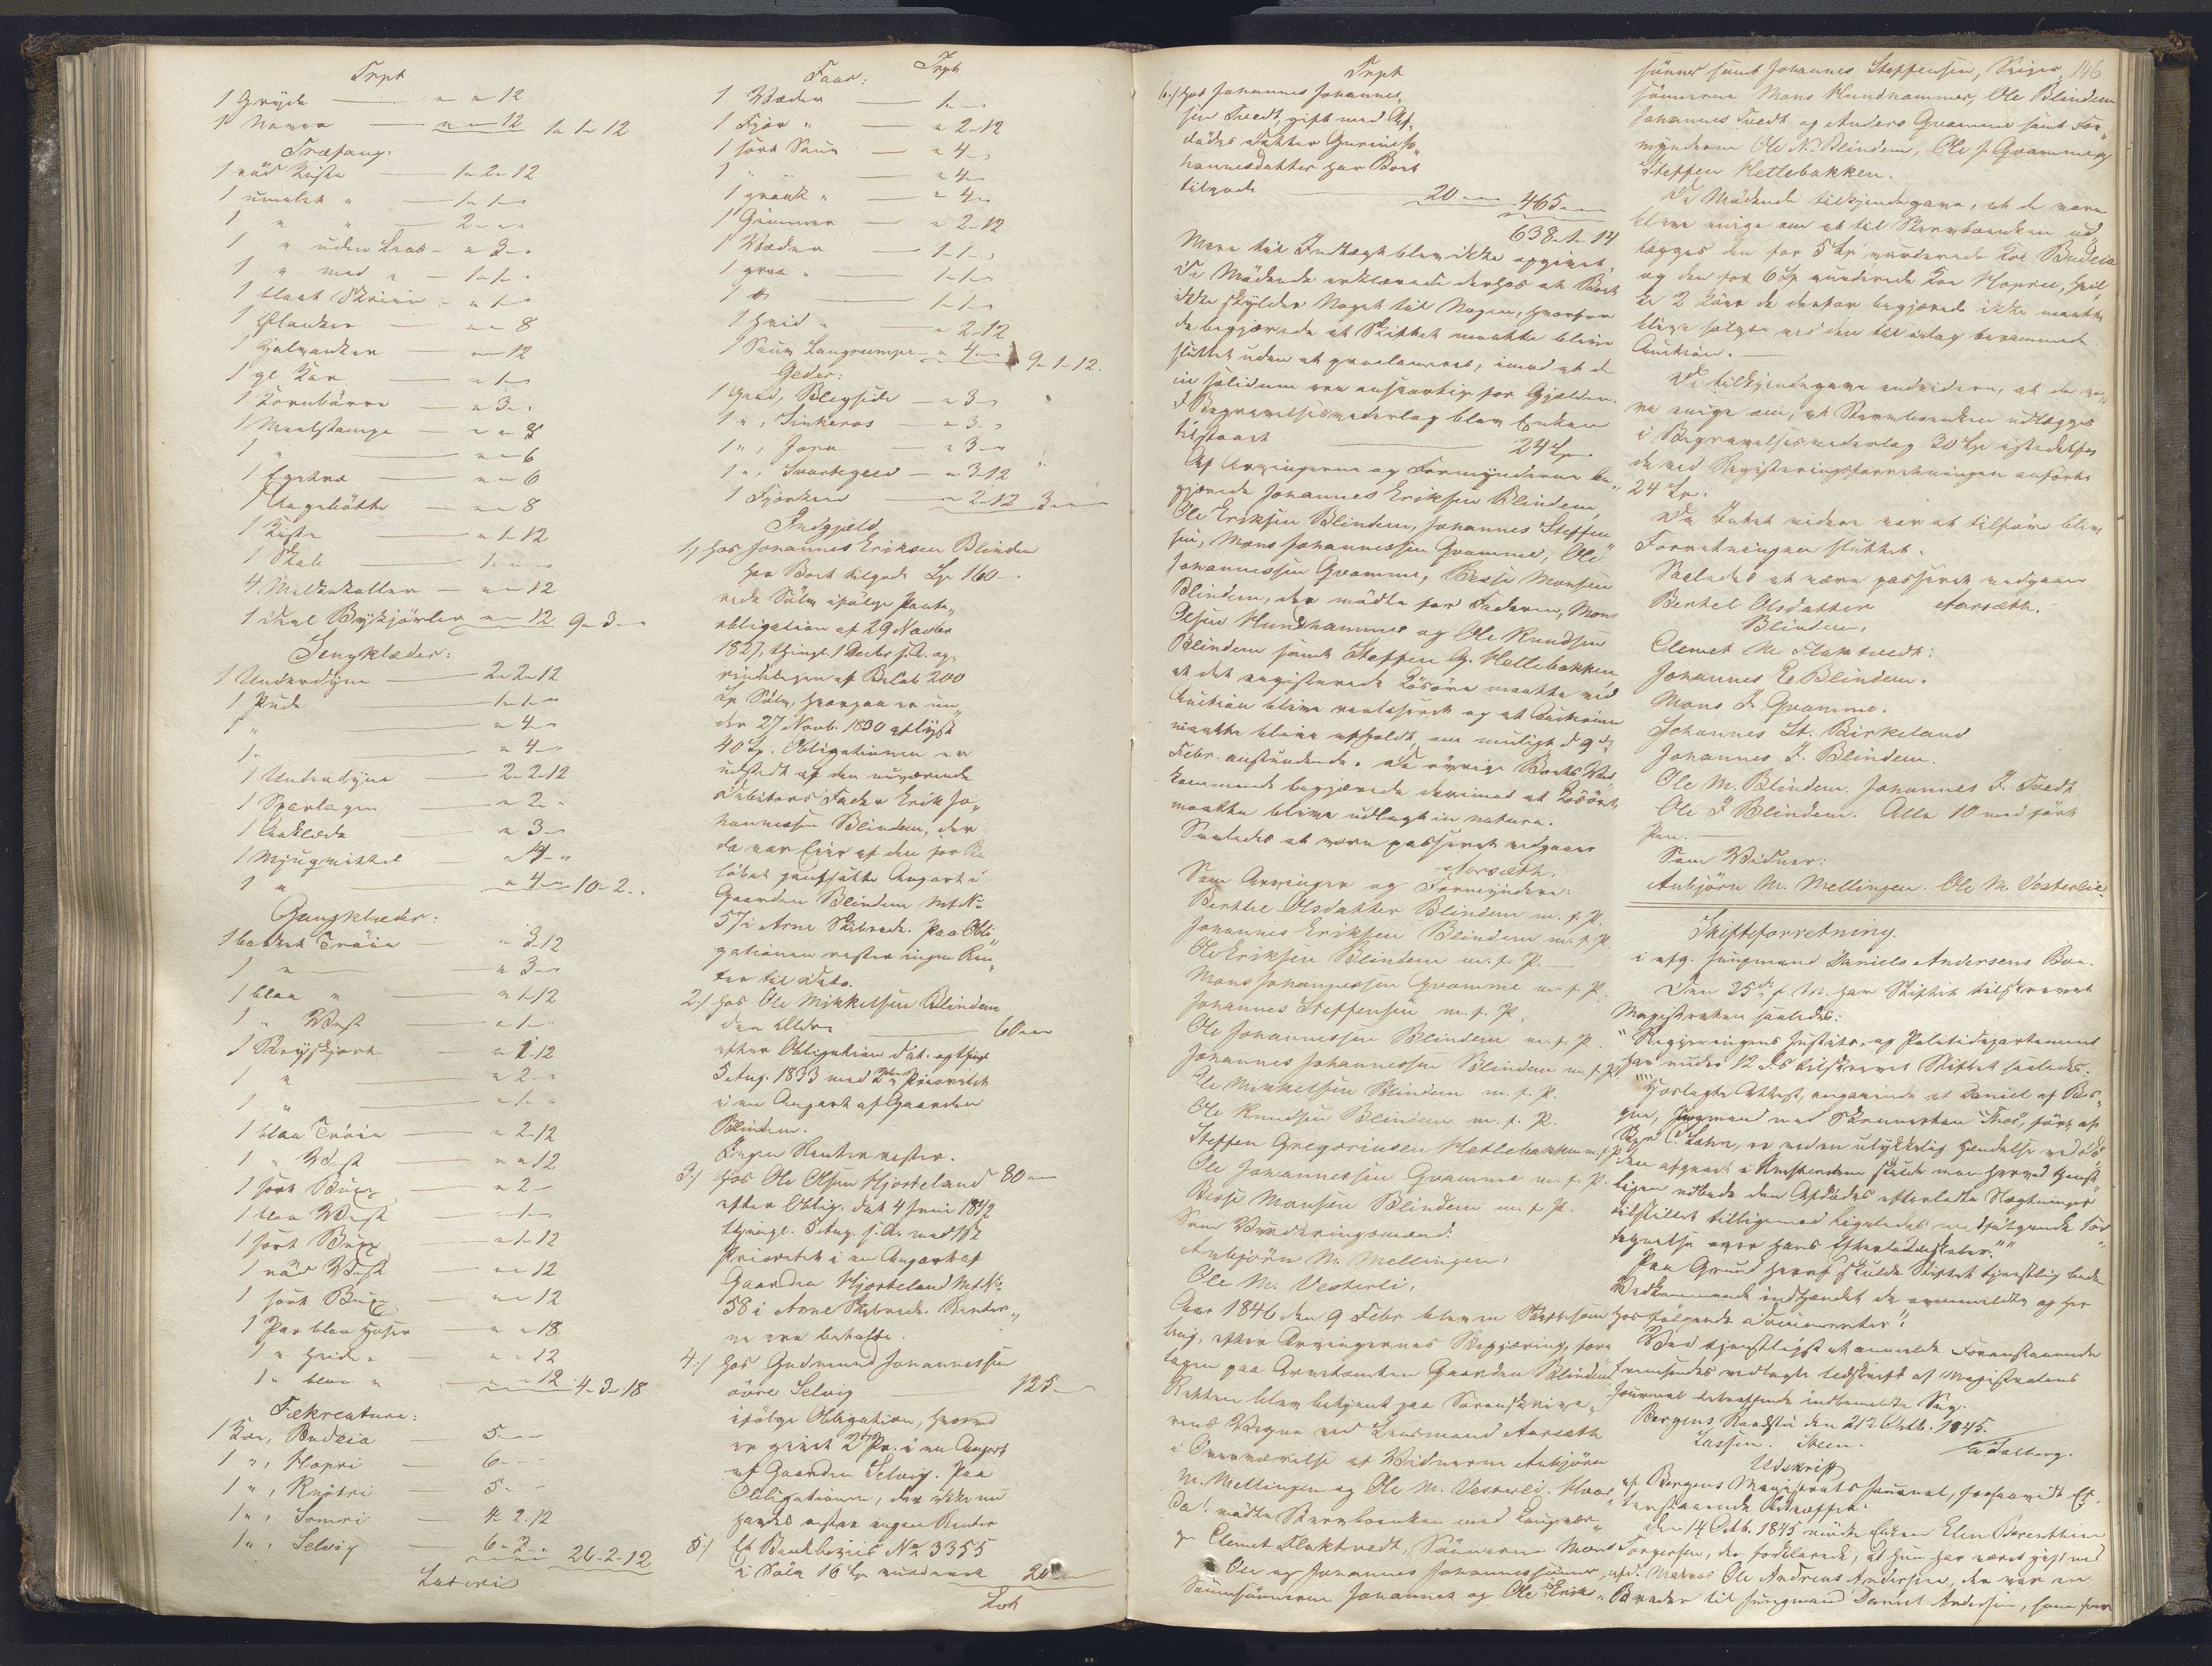 Trpt
1 Gryde — " " 12
1 Naver — " " 12 1 " 1 " 12
Træfang:
1 rød Kiste — 1 " 2 " 12
1 umalet " — 1 " 1 "
1 " " — 2 " "
1 " uden Laas — " 3 "
1 " med " — 1 " 1 "
1 blaat Skriin — " 1 "
1 Ølanker — " " 8
1 Halvanker — " " 12
1 gl. Kar — " 1 "
1 Kornbørre — " 3 "
1 Meelstampe — " " 8
1 " — " " 6
1 — " " 6
1 Bagebøtte — " " 8
1 Kiste — " 1 " 12
1 Skab — 1 " "
4 Melkekoller — " " 12
1 deel Bykjørler " " 12 9 " 3 "
Sengklæder:
1 Underdyne — 2 " 2 " 12
1 Pude — 1 " 1 "
1 " — " 4 "
1 " — " 4 "
1 Underdyne — 2 " 2 " 12
1 Sparlagen — " 2 "
1 Aaklæde — " 3 "
1 — " 4 "
1 " — " 4 " 10 " 2 "
Gangklæder:
1 Trøie — " 3 " 12
1 " — " 3 "
1 blaa " — " 1 " 12
1 " Vest — " 1 "
1 Skryskjort — " 1 " 12
1 " — " 2 "
1 " — " 1 "
1 blaa Trøie — " 2 " 12
1 " Vest — " " 12
1 sort Buxe — " 2 "
1 blaa Vest — " 1 "
1 sort Buxe — " 1 " 12
1 rød Vest — " " 12
1 sort Buxe — " " 12
1 Par blaa Hoser — " " 18
1 " hvide " — " " 12
1 " blaa " — " " 12 4 " 3 " 18
Fækreature:
1 Koe, Budeia 5 " "
1 ", Hopri — 6 " "
1 ", — 5 " "
1 ", Somri — 4 " 2 " 12
1 ", Selvig — 6 " " 26 " 2 " 12
Lateris
Faar: Trpt
1 Væder — 1 " "
1 Fjør " — " 2 " 12
1 sort Sau — " 4 "
1 " " " 4 "
1 graat " — " 4 "
1 Gimmer — " 2 " 12
1 Væder — 1 " 1 "
1 graa " — 1 " 1 "
1 do — 1 " 1 "
1 hvid " — " 2 " 12
1 Sau, Langrumpe — " 4 " 9 " 1 " 12
Geder:
1 Geed, Blegside — " 3 "
1 ", Sinkeros — " 3 "
1 ", — " 3 "
1 ", Svartegeed — " 3 " 12
1 Fjørkied — " 2 " 12 3 " "
Indgjeld
1,) hos Johannes Eriksen Blindem
har Boet tilgode Spr 160 "
rede Sølv ifølge Pante„
obligation af 29 Novbr
1827, thingl. 1 Decbr s. A. op„
rindeligen af Beløb 200
Spr Sølv, hvorpaa er un„
der 27 Novb. 1830 aflyst
40 Spr. Obligationen er
udstedt af den nuværende
Debitors Fader Erik Jo„
hannesen Blindem, der
da var Eier af den for Be„
løbet pantsatte Anpart i
Gaarden Blindem Mt No
57 i Arne Skibrede. Paa Obli„
gationen rester ingen Ren„
ter til Dato.
2.) hos Ole Mikkelsen Blindem
den Ældre — 60 " "
efter Obligation dat. og thingl
5 Aug. 1833 med 2den Prioritet
i en Anpart af Gaarden
Blindem.
Ingen Renter rester.
3.) hos Ole Olsen Hjorteland 80 " "
efter Oblig. dat 4 Juni 1842
thingl. 5 Aug. s. A. med 1ste
Prioritet i en Anpart af
Gaarden Hjorteland Mt No
58 i Arne Skibrede. Renter„
ne ere betalte.
4.) hos Gudmund Johannessen
øvre Selvig — 125 "
ifølge Obligation, hvorved
er givet 2den Pr. i en Anpart
af Gaarden Selvig. Paa
Obligationen, der ikke nu
havdes rester ingen Renter
5.) Et Bankbeviis No 3355
i Sølv 16 Spr vurderet 20 " "
Lat
Trpt
6.) hos Johannes Johannes„
sen Tvedt, gift med Af„
dødes Datter Guri Jo„
hannesdatter har Boet
tilgode — 20 " " 465 " "
638 " 1 " 14
Mere til Indtægt blev ikke opgivet.
De Mødende erklærede derhos at Boet
ikke skylder Noget til Nogen, hvorfor
de begjærede at Skiftet maatte blive
sluttet uden at proclameres, imod at de
in solidum ere ansvarlige for Gjælden.
I Begravelsesvederlag blev Enken
tilstaaet — 24 Spr
Af Arvingerne og Formynderne be„
gjærede Johannes Eriksen Blindem,
Ole Eriksen Blindem, Johannes Steffen„
sen, Mons Johannessen Gvamme, Ole
Johannessen Gvamme, Besse Monsen
Blindem, der mødte for Faderen, Mons
Olsen Hundhammer og Ole Knudsen
Blindem samt Steffen G. Hetlebakken
at det registrerede Løsøre maatte ved
Auction blive realiseret og at Auctionen
maatte blive afholdt, om muligt d 9de
Febr. anstundende. De øvrige Boets Ved„
kommende begjærede derimod at Løsøret
maatte blive udlagt in natura.
Saaledes at være passeret vedgaaer
Aarsæth.
Som Arvinger og Formyndere:
Berthe Olsdatter Blindem m. f. P.
Johannes Eriksen Blindem m. f. P.
Ole Eriksen Blindem m. f. P.
Mons Johannessen Gvamme m. f. P.
Johannes Steffensen m. f. P.
Ole Johannessen Blindem m. f. P.
Johannes Johannessen Blindem m. f. P.
Ole Mikkelsen Blindem m. f. P.
Ole Knudsen Blindem m. f. P.
Steffen Gregoriusen Hetlebakken m. f. P.
Ole Johannessen Gvamme m. f. P.
Besse Monsen Blindem m. f. P.
Som Vurderingsmænd:
Anbjørn M. Mellingen.
Ole M. Vesterli.
Aar 1846 den 9 Febr blev en Skiftesam„
ling, efter Arvingernes Begjæring, fore„
tagen paa Arvetomten Gaarden Blindem
Retten blev betjent paa Sorenskrive„
rens Vegne ved Lensmand Aarsæth
i Overværelse af Vidnerne Anbjørn
M. Mellingen og Ole M. Vesterli. Hvor„
da! mødte Stervboenken med Laugvær„
ge Clemet Flaktvedt, Sønnerne Mons
Ole og Johannes Johannessønner,
Sønnesønnerne Johannes og Ole Eriks„
sønner samt Johannes Steffensen, Sviger„ 146
sønnerne Mons Hundhammer, Ole Blindem
Johannes Tvedt og Anders Gvamme samt For„
mynderne Ole K. Blindem, Ole J. Gvamme og
Steffen Hetlebakken.
De Mødende tilkjendegave, at de vare
blevne enige om at til Stervboenken ud„
lægges den for 5 Spr vurderede Koe Budeia
og den for 6 Spr vurderede Koe Hopri, hvil„
ke 2 Køer de derfor begjærede ikke maatte
blive solgte ved den til idag berammede
Auction.
De tilkjendegave endvidere, at de va„
re enige om, at Stervboenken udlægges
i Begravelsesvederlag 30 Spr istedetfor
de ved Registreringsforretningen anførte
24 Spr.
Da Intet videre var at tilføre blev
Forretningen sluttet.
Saaledes at være passeret vedgaaer
Berthe Olsdatter Aarsæth.
Blindem.
Clemet N. Flaktvedt:
Johannes E. Blindem.
Mons J. Gvamme.
Johannes St. Birkeland
Johannes J. Blindem.
Ole M. Blindem. Johannes J. Tvedt
Ole J Blindem. Alle 10 med ført
Pen.
Som Vidner:
Anbjørn M. Mellingen. Ole M. Vesterlie
Skifteforretning.
i afg. Jungmand Daniels Andersens Boe.
Den 25de f. M. har Skiftet tilskrevet
Magistraten saaledes:
"Regjeringens Justits- og Politidepartement
har under 12 d. S. tilskrevet Stiftet saaledes:
""Hoslagte Attest, angaaende at Daniel af Ber„
gen, Jungmand med Skonnerten "Thor", ført af
Capt. C. Lahn, er ved en ulykkelig Hændelse ved Dø„
den afgaaet i Amsterdam skulde man herved tjenst„
ligen udbede den Afdødes efterladte Slægtninge
tilstillet tilligemed ligeledes medfølgende For„
tegnelse over hans Efterladenskaber.""
Paa Grund heraf skulde Stiftet tjenstlig bede
Vedkommende indhændet de ovenmeldte og her„
hos følgende Documenter".
Ved tjenstligst at anmelde Foranstaaende
fremsendes vedlagte Udskrift af Magistratens
Journal betræffende indbemeldte Sag.
Bergens Raadstu den 21de Octb. 1845.
Lassen. Steen. C. Dalberg.
Udskrift
af Bergens Magistrats Journal, forsaavidt Ef„
terstaaende betræffer.
den 14 Octb. 1845 mødte Enken Elen Berenthine
Torgersen, der forklarede, at hun har været gift med
afd. Matros Ole Andreas Andersen, der var en
Broder til Jungmand Daniel Andersen, som for